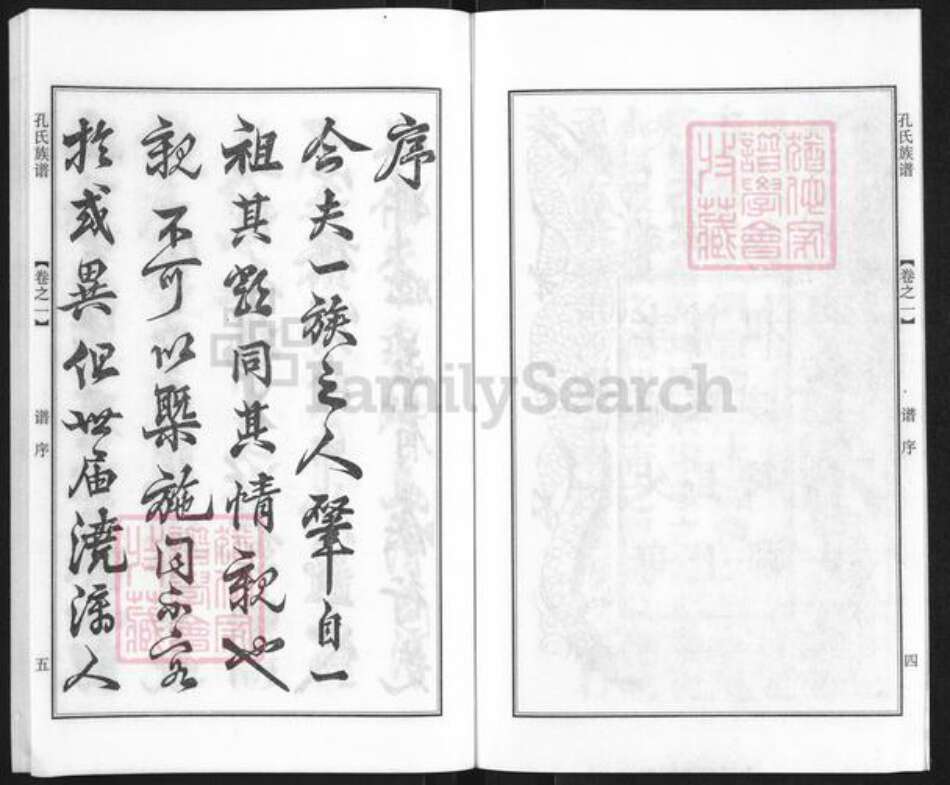 孔氏族谱
【卷之一】
谱序
四
譜學會
收藏
序
今夫一族之人肇自一
祖其類同其情親也
親不可以槩施同不容
於或異但世届澆漓人
孔氏族谱
【卷之一】
谱序
五
FamilySearch